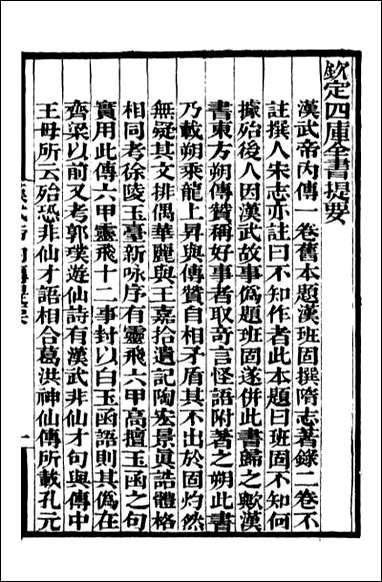 欽定四庫全書提要
漢武帝內傳一卷舊本題漢班固撰隋志著錄二卷不
註撰人宋志亦註曰不知作者此本題曰班固不知何
據殆後人因漢武故事僞題班固遂併此書歸之歟漢
書東方朔傳贊稱好事者取奇言怪語附著之朔此書
乃載朔乘龍上昇與傳贊自相矛盾其不出於固灼然
無疑其文排偶華麗與王嘉拾遺記陶宏景眞誥體格
相同考徐陵玉臺新咏序有靈飛六甲高擅玉函之句
實用此傳六甲靈飛十二事封以白玉函語則其僞在
齊梁以前又考郭璞遊仙詩有漢武非仙才句與傳中
王母所云殆恐非仙才語相合葛洪神仙傳所載孔元
一